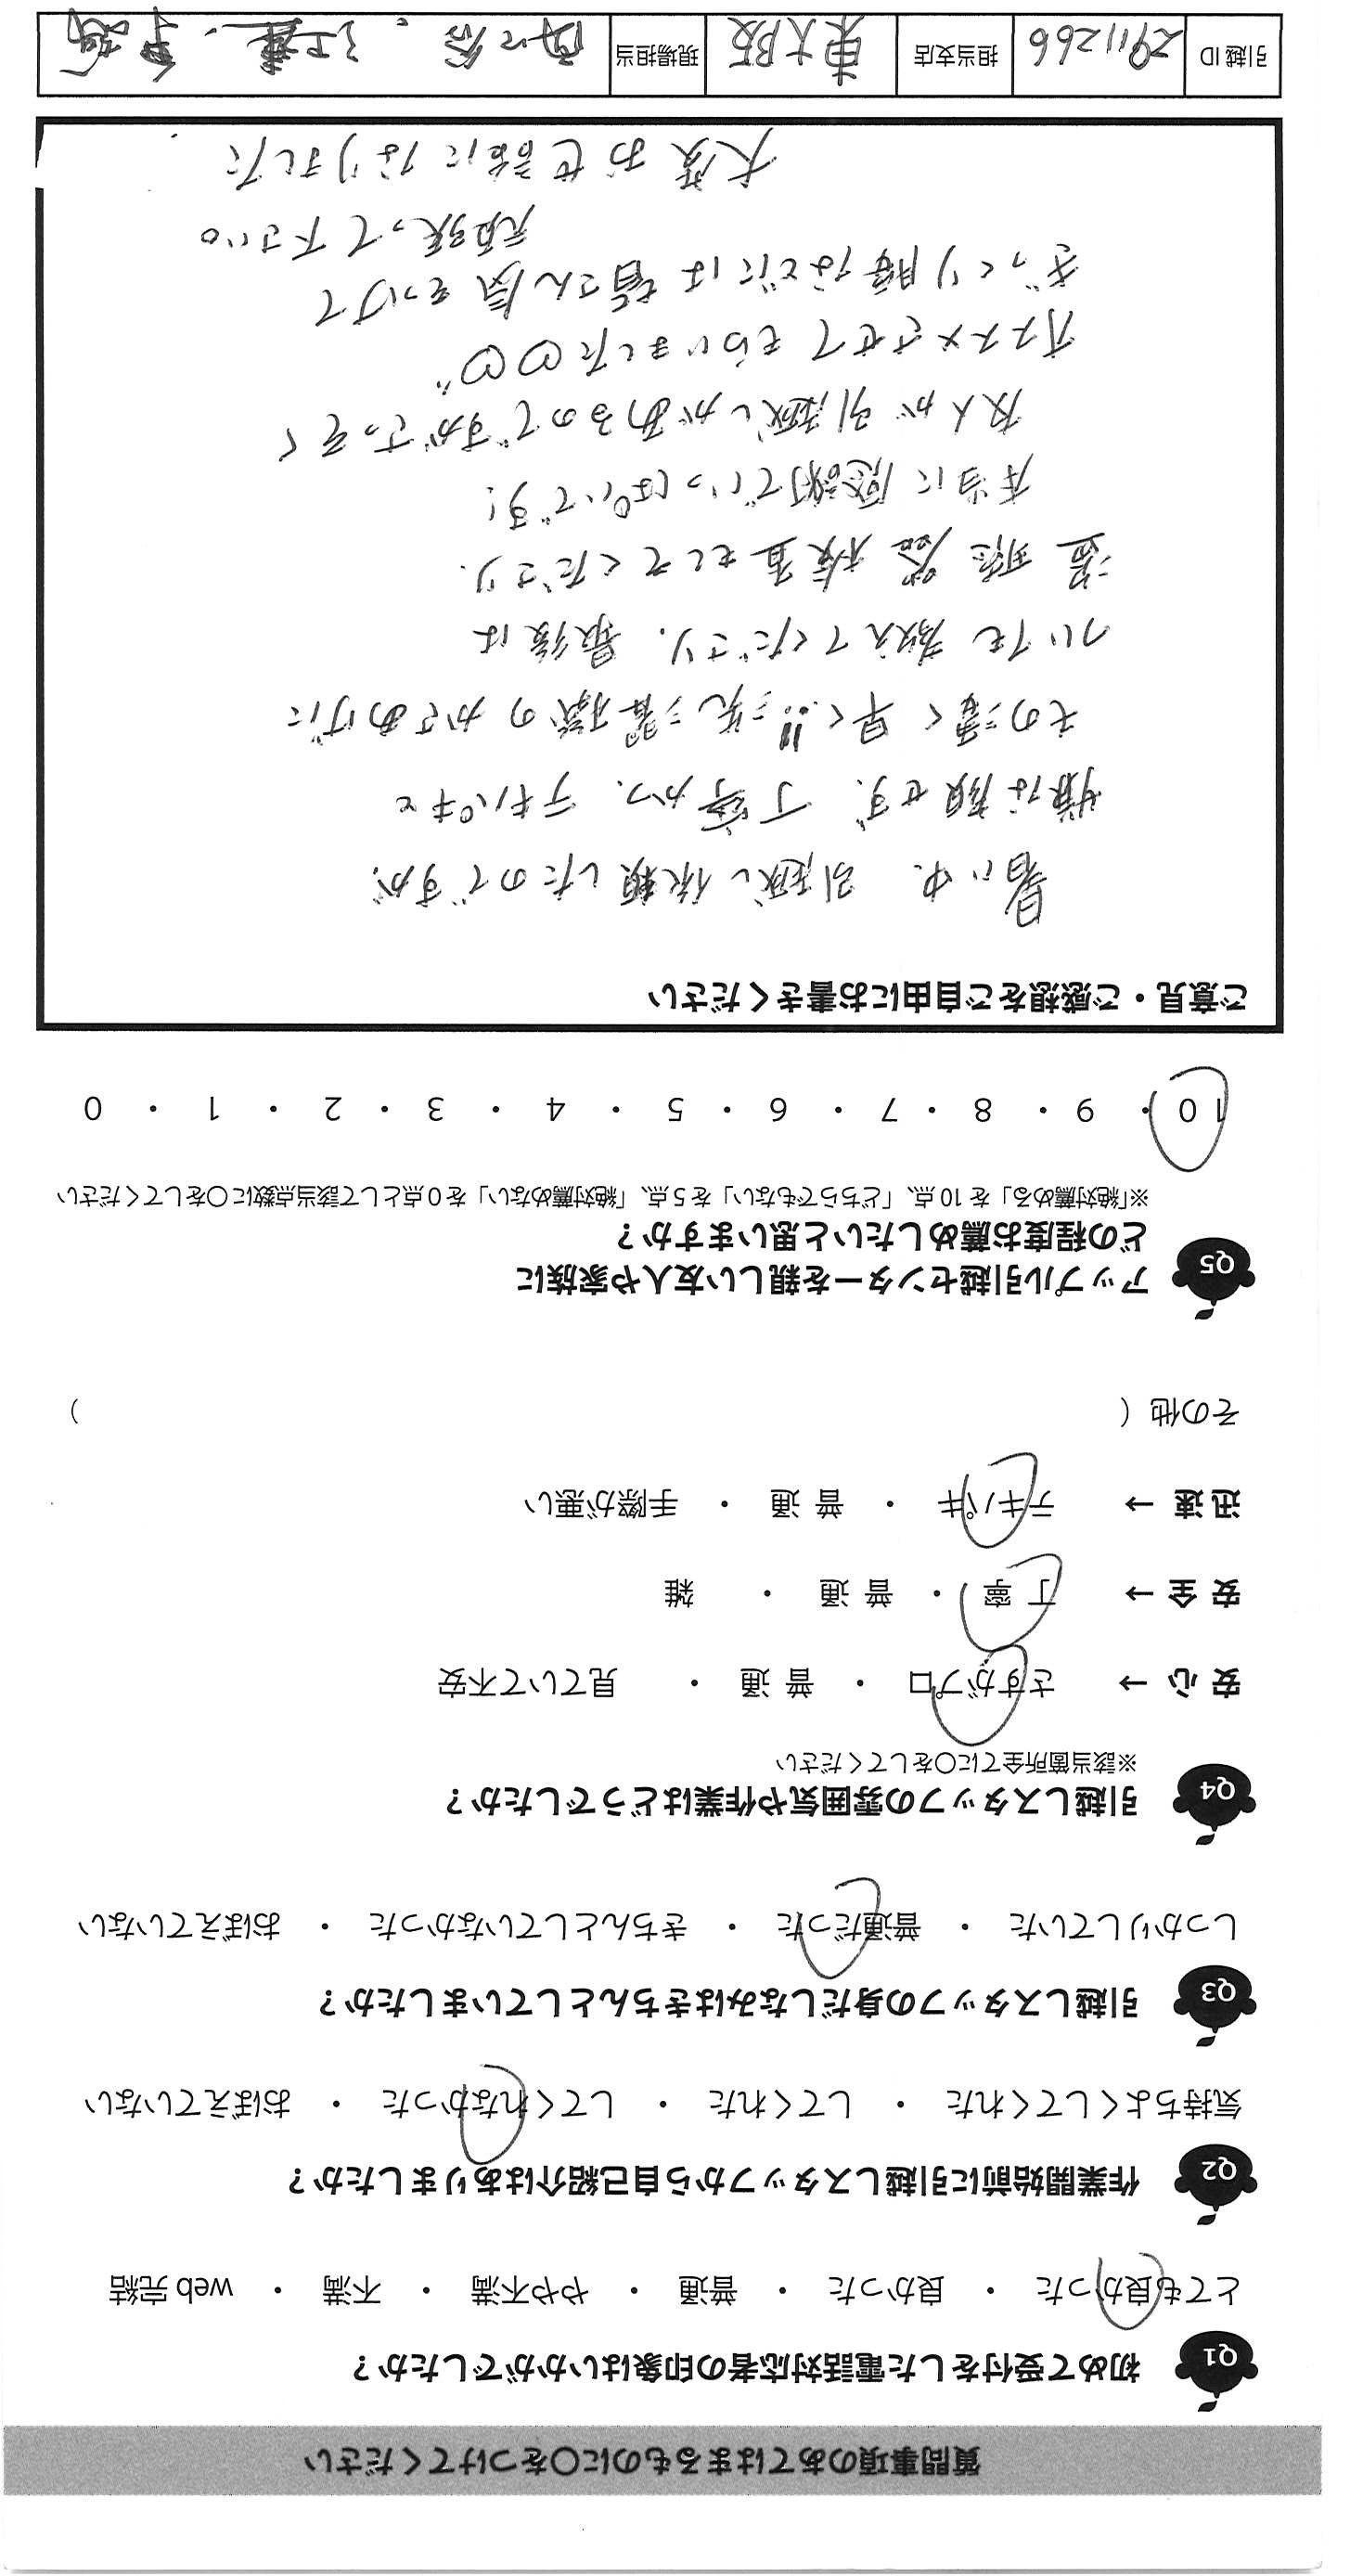 質問事項のあてはまるものに○をつけてください
Q1 初めて受付をした電話対応者の印象はいかがでしたか？
とても良かった ・ 良かった ・ 普通 ・ やや不満 ・ 不満 ・ web 完結
Q2 作業開始前に引越しスタッフから自己紹介はありましたか？
気持ちよくしてくれた ・ してくれた ・ してくれなかった ・ おぼえていない
Q3 引越しスタッフの身だしなみはきちんとしていましたか？
しっかりしていた ・ 普通だった ・ きちんとしていなかった ・ おぼえていない
Q4 引越しスタッフの雰囲気や作業はどうでしたか？
※該当箇所全てに○をしてください
安心 → さすがプロ ・ 普通 ・ 見ていて不安
安全 → 丁寧 ・ 普通 ・ 雑
迅速 → テキパキ ・ 普通 ・ 手際が悪い
その他（ ）
Q5 アップル引越センターを親しい友人や家族に
どの程度お薦めしたいと思いますか？
※「絶対薦める」を 10 点、「どちらでもない」を 5 点、「絶対薦めない」を 0 点として該当点数に○をしてください
10 ・ 9 ・ 8 ・ 7 ・ 6 ・ 5 ・ 4 ・ 3 ・ 2 ・ 1 ・ 0
ご意見・ご感想をご自由にお書きください
暑い中、引越し依頼したのですが、
嫌な顔せず、丁寧かつ、テキパキと
その凄く早く!!洗濯機のかさあげに
ついても教えてくださり、最後は
盗聴器検査をしてくださり、
本当に感謝でいっぱいです!
友人が引越しがあるのですがさっそく
オススメさせてもらいました♡♡
ぎっくり腰などには皆さん気をつけて
頑張って下さい。
大変お世話になりました
引越 ID 2911266 担当支店 東大阪 現場担当